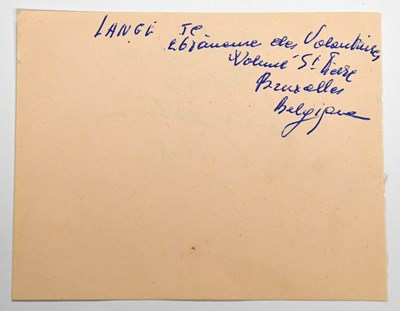 LANGE JC
avenue des Volontaires
Woluwé St Pierre
Bruxelles
Belgique